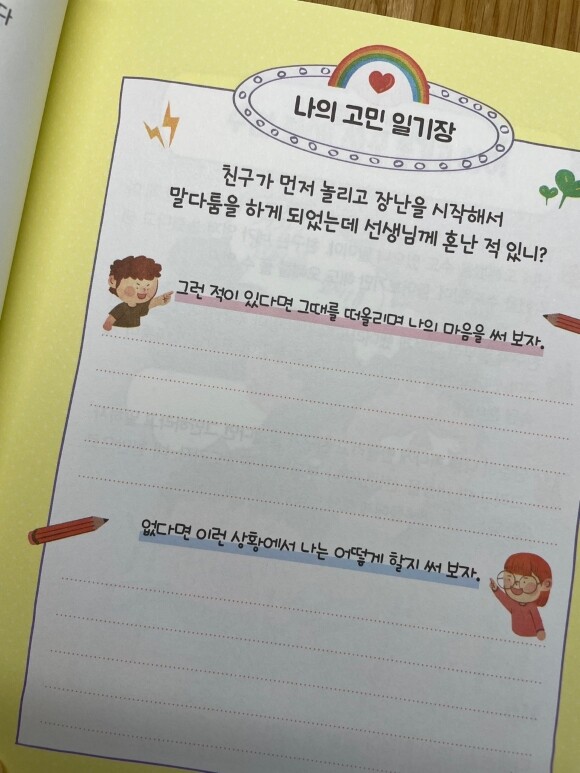 다
나의 고민 일기장
친구가 먼저 놀리고 장난을 시작해서
말다툼을 하게 되었는데 선생님께 혼난 적 있니?
그런 적이 있다면 그때를 떠올리며 나의 마음을 써 보자.
없다면 이런 상황에서 나는 어떻게 할지 써 보자.